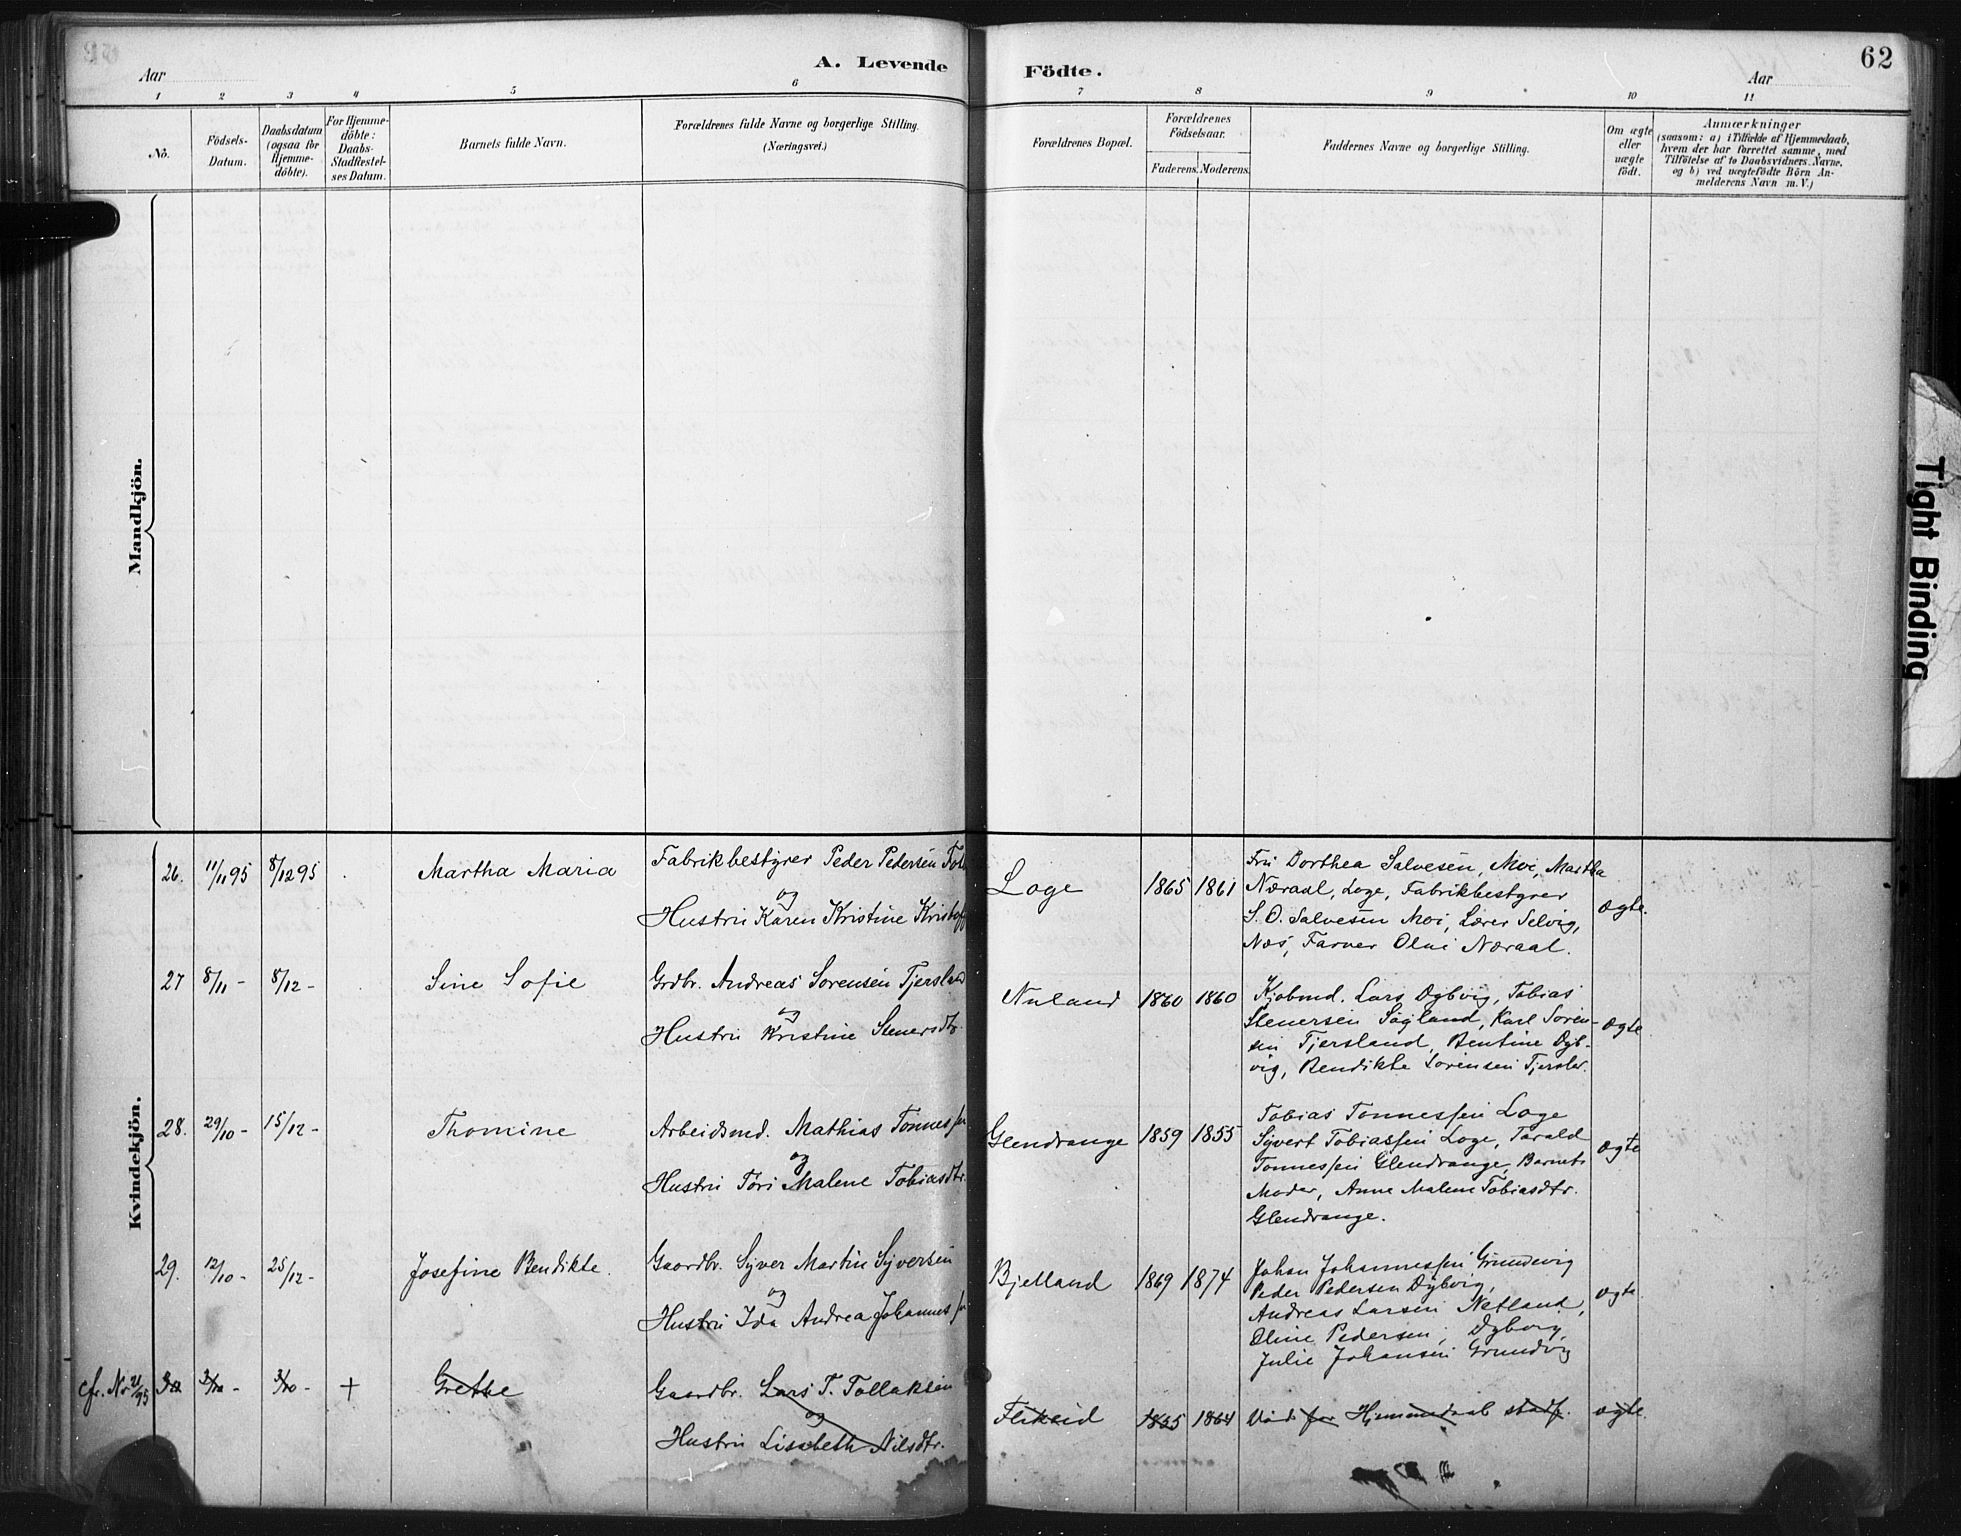 62
A. Levende Födte.
Aar
Aar
1 2 3 4 5 6 7 8 9 10 11
No.
Födsels-Datum.
Daabsdatum (ogsaa for Hjemme-döbte).
For Hjemme-döbte: Daabs-Stadfæstel-ses Datum.
Barnets fulde Navn.
Forældrenes fulde Navne og borgerlige Stilling.
(Næringsvei.)
Forældrenes Bopæl.
Forældrenes Födselsaar.
Faderens. Moderens.
Faddernes Navne og borgerlige Stilling.
Om ægte eller uægte födt.
Anmærkninger
(saasom: a) i Tilfælde af Hjemmedaab,
hvem der har forrettet samme, med
Tilföielse af to Daabsvidners Navne,
og b) ved uægtefödte Börn An-
melderens Navn m. V.)
Mandkjön.
Tight Binding
Kvindekjön.
26. 11/11 95 8/12 95 Martha Maria
Fabrikbestyrer Peder Pedersen
og
Hustru Karen Kristine
Loge 1865 1861
Fru Dorthea Salvesen, Moi, Martha
Næraal, Loge, Fabrikbestyrer
S. O. Salvesen Moi, Lærer Selvig,
Næs, Farver Olui Næraal.
ægte.
27 8/11 - 8/12 - Sine Sofie
Grdbr. Andreas Sorensen Tjersland
og
Hustru Kristine Stenersdtr.
Nuland 1860 1860
Kjobmd. Lars Dybvig, Tobias
Stenersen Sagland, Karl Soren-
sen Tjersland, Bentine Dyb-
vig, Bendikte Sorensen Tjersler.
ægte
28. 29/10 - 15/12 - Thomine
Arbeidsmd. Mathias Tonnessen
og
Hustru Tori Malene Tobiasdtr.
Glendrange 1859 1855
Tobias Tonnessen Loge
Syvert Tobiassen Loge, Tarald
Tonnessen Glendrange, Barnets
Moder, Anne Malene Tobiasdtr.
Glendrange.
ægte
29. 12/10 - 25/12 - Josefine Bendikte.
Gaardbr. Syver Martin Syversen
og
Hustru Ida Andrea Johannessen
Bjelland 1869 1874
Johan Johannessen Grundvig
Peder Pedersen Dybvig,
Andreas Larsen Netland,
Oline Pedersen, Dybvig,
Julie Johansen Grundvig
ægte
cfr. No 21/95 30. 3/10 - 3/10 - + Grethe
Gaardbr. Lars T. Tollaksen
og
Hustru Lisabeth Nilsdtr.
Flikeid 1855 1864 Död før Hjemmedaab stadf. ægte.